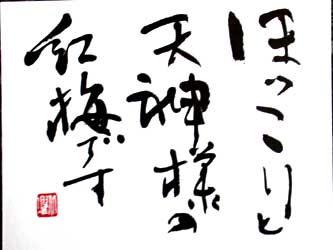 ほっこりと
天神様の
紅梅です